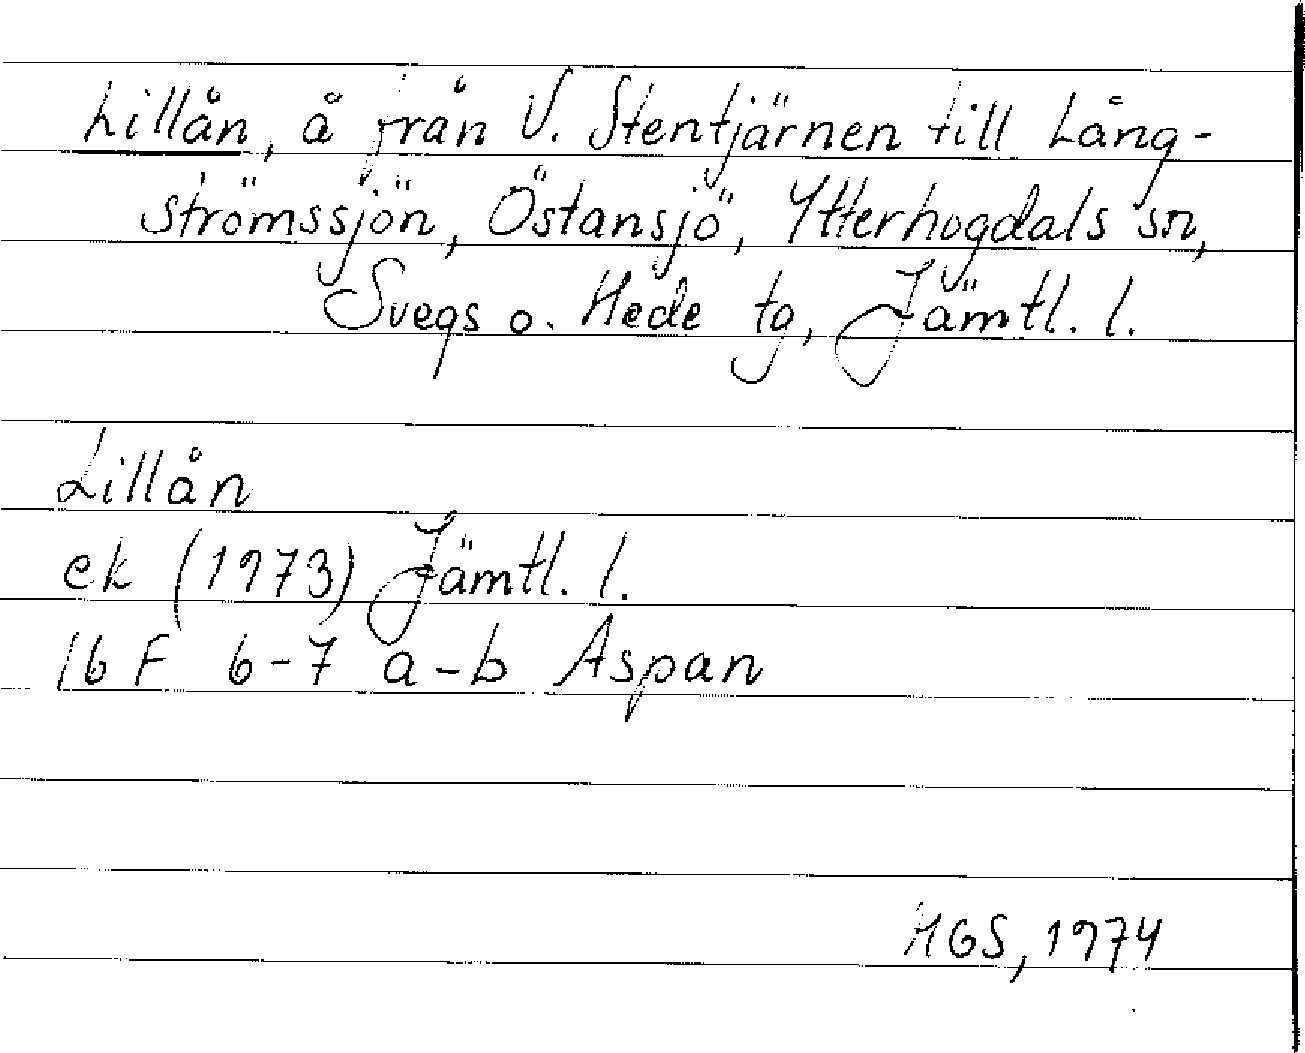 Lillån, å från V. Stentjärnen till Lång-
strömssjön, Östansjö, Ytterhogdals sn,
Svegs o. Hede tg, Jämtl. l.
Lillån
ek (1973) Jämtl. l.
16 F 6-7 a-b Aspan
HGS, 1974